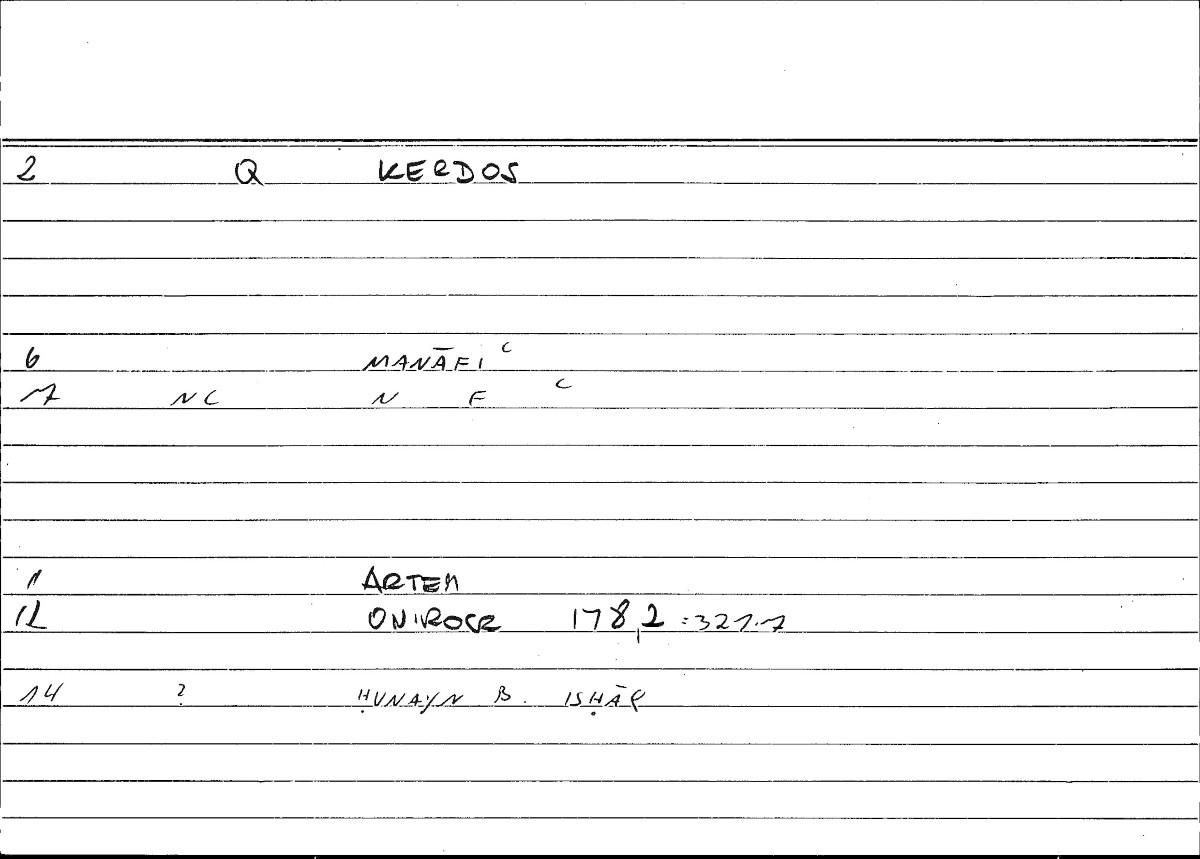 2 Q KERDOS
6 MANĀFIᶜ
7 NC N F ᶜ
1 ARTEM
12 ONIROCR 178,2 :321.7
14 ? ḤUNAYN B. ISḤĀQ